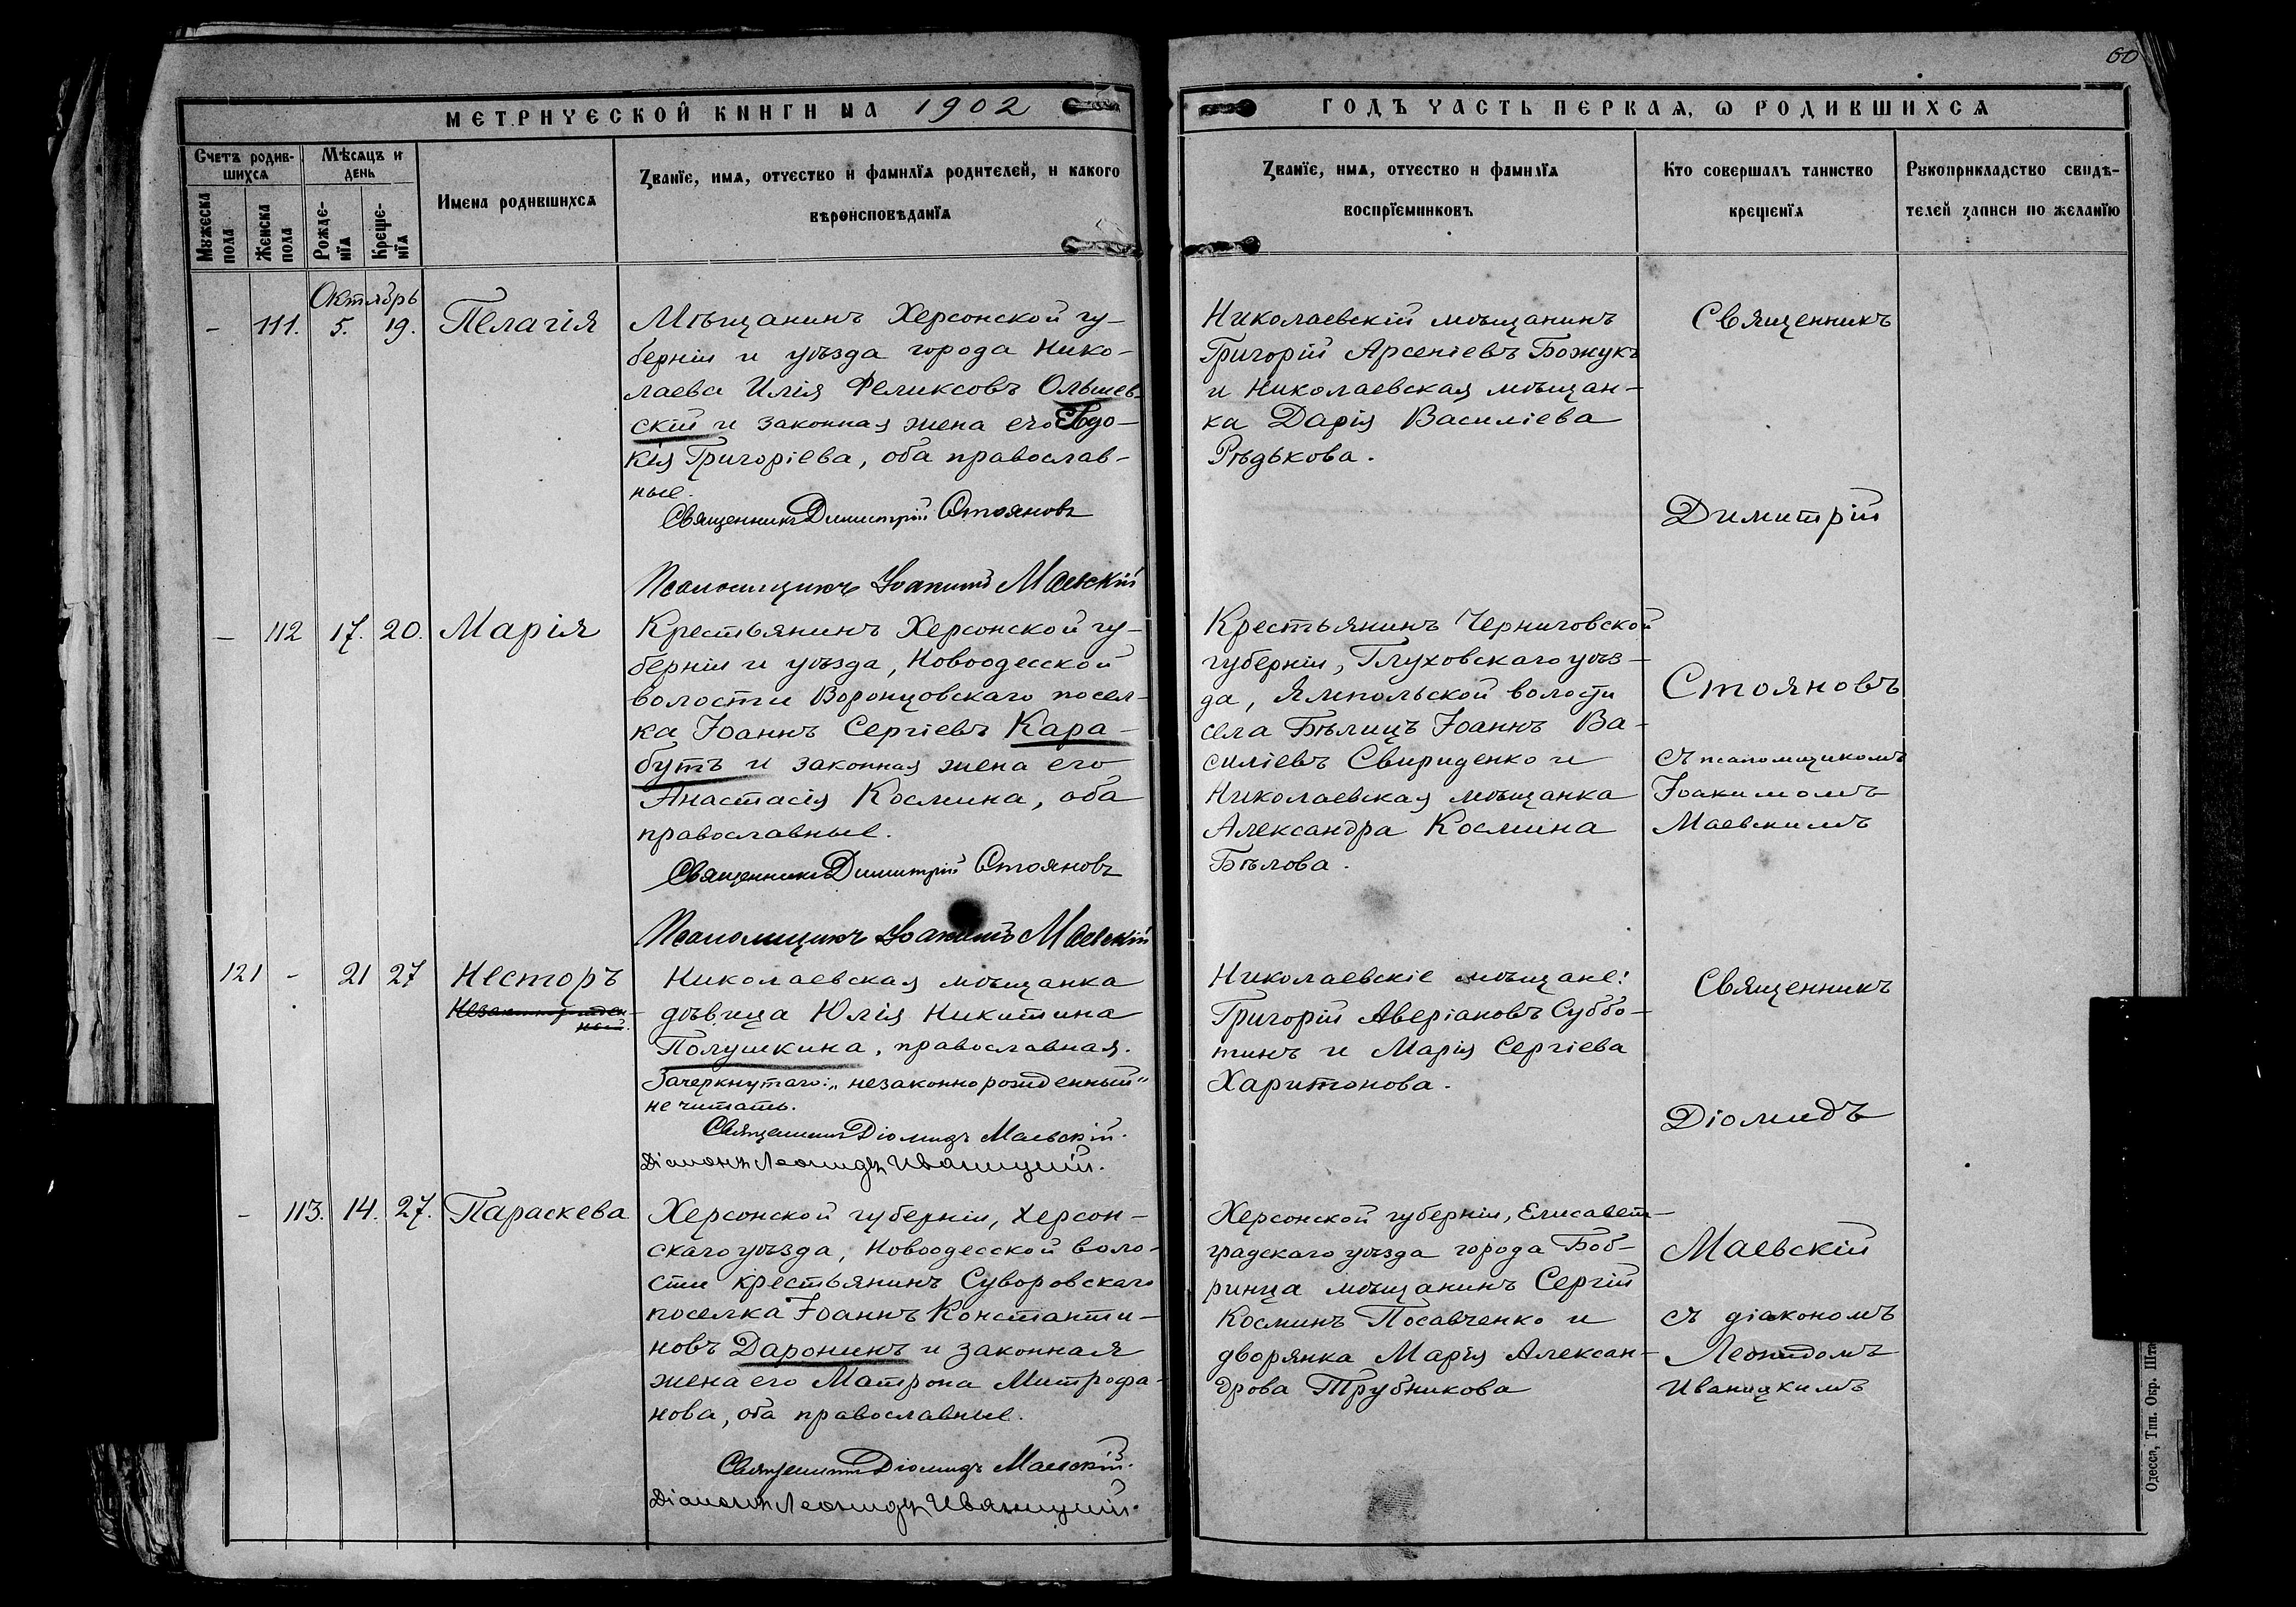 60
МЕТРИЧЕСКОЙ КНИГИ НА 1902
ГОДЪ ЧАСТЬ ПЕРВАЯ, Ѡ РОДИВШИХСЯ
Счетъ родив-
шихся
Мѣсяцъ и
день
Мужеска
пола
Женска
пола
Рожде-
нїя
Креще-
нїя
Имена родившихся
Званїе, имя, отчество и фамилїя родителей, и какого
вѣроисповѣданїя
Званїе, имя, отчество и фамилїя
воспрїемниковъ
Кто совершалъ таинство
крещенїя
Рукоприкладство свидѣ-
телей записи по желанїю
Октябрь
- 111. 5. 19. Пелагія
Мѣщанинъ Херсонской гу-
берніи и уѣзда города Нико-
лаева Илія Феликсовъ Ольшев-
скій и законная жена его Евдо-
кія Григоріева, оба православ-
ные.
Священникъ Димитрій Стояновъ
Псаломщикъ Іоакимъ Маевскій
Николаевскій мѣщанинъ
Григорій Арсеніевъ Божукъ
и Николаевская мѣщан-
ка Дарія Василіева
Рѣдькова.
Священникъ
Димитрій
- 112 17. 20. Марія
Крестьянинъ Херсонской гу-
берніи и уѣзда, Новоодесской
волости Воронцовскаго посел-
ка Іоаннъ Сергіевъ Кара-
бутъ и законная жена его
Анастасія Космина, оба
православные.
Священникъ Димитрій Стояновъ
Псаломщикъ Іоакимъ Маевскій
Крестьянинъ Черниговской
губерніи, Глуховскаго уѣз-
да, Ямпольской волости
села Бѣлицъ Іоаннъ Ва-
силіевъ Свириденко и
Николаевская мѣщанка
Александра Космина
Бѣлова.
Стояновъ
съ псаломщикомъ
Іоакимомъ
Маевскимъ
121 - 21 27 Несторъ
Незаконнорожден-
ный.
Николаевская мѣщанка
дѣвица Юлія Никитина
Полушкина, православная.
Зачеркнутаго: „незаконнорожденный"
не читать.
Священникъ Діомидъ Маевскій.
Діаконъ Леонидъ Иваницкій.
Николаевскіе мѣщане:
Григорій Аверіановъ Суббо-
тинъ и Марія Сергіева
Харитонова.
Священникъ
Діомидъ
- 113. 14. 27. Параскева
Херсонской губерніи, Херсон-
скаго уѣзда, Новоодесской воло-
сти крестьянинъ Суворовскаго
поселка Іоаннъ Константи-
новъ Даронинъ и законная
жена его Матрона Митрофа-
нова, оба православные.
Священникъ Діомидъ Маевскій.
Діаконъ Леонидъ Иваницкій.
Херсонской губерніи, Елисавет-
градскаго уѣзда города Боб-
ринца мѣщанинъ Сергій
Косминъ Посавченко и
дворянка Марія Алексан-
дрова Трубникова
Маевскій
съ діакономъ
Леонидомъ
Иваницкимъ
Одесса, Тип. Окр. Шта